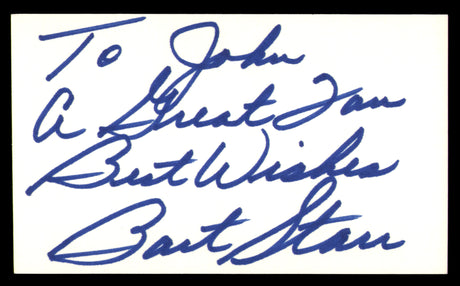 To John
A Great Fan
Best Wishes
Bart Starr